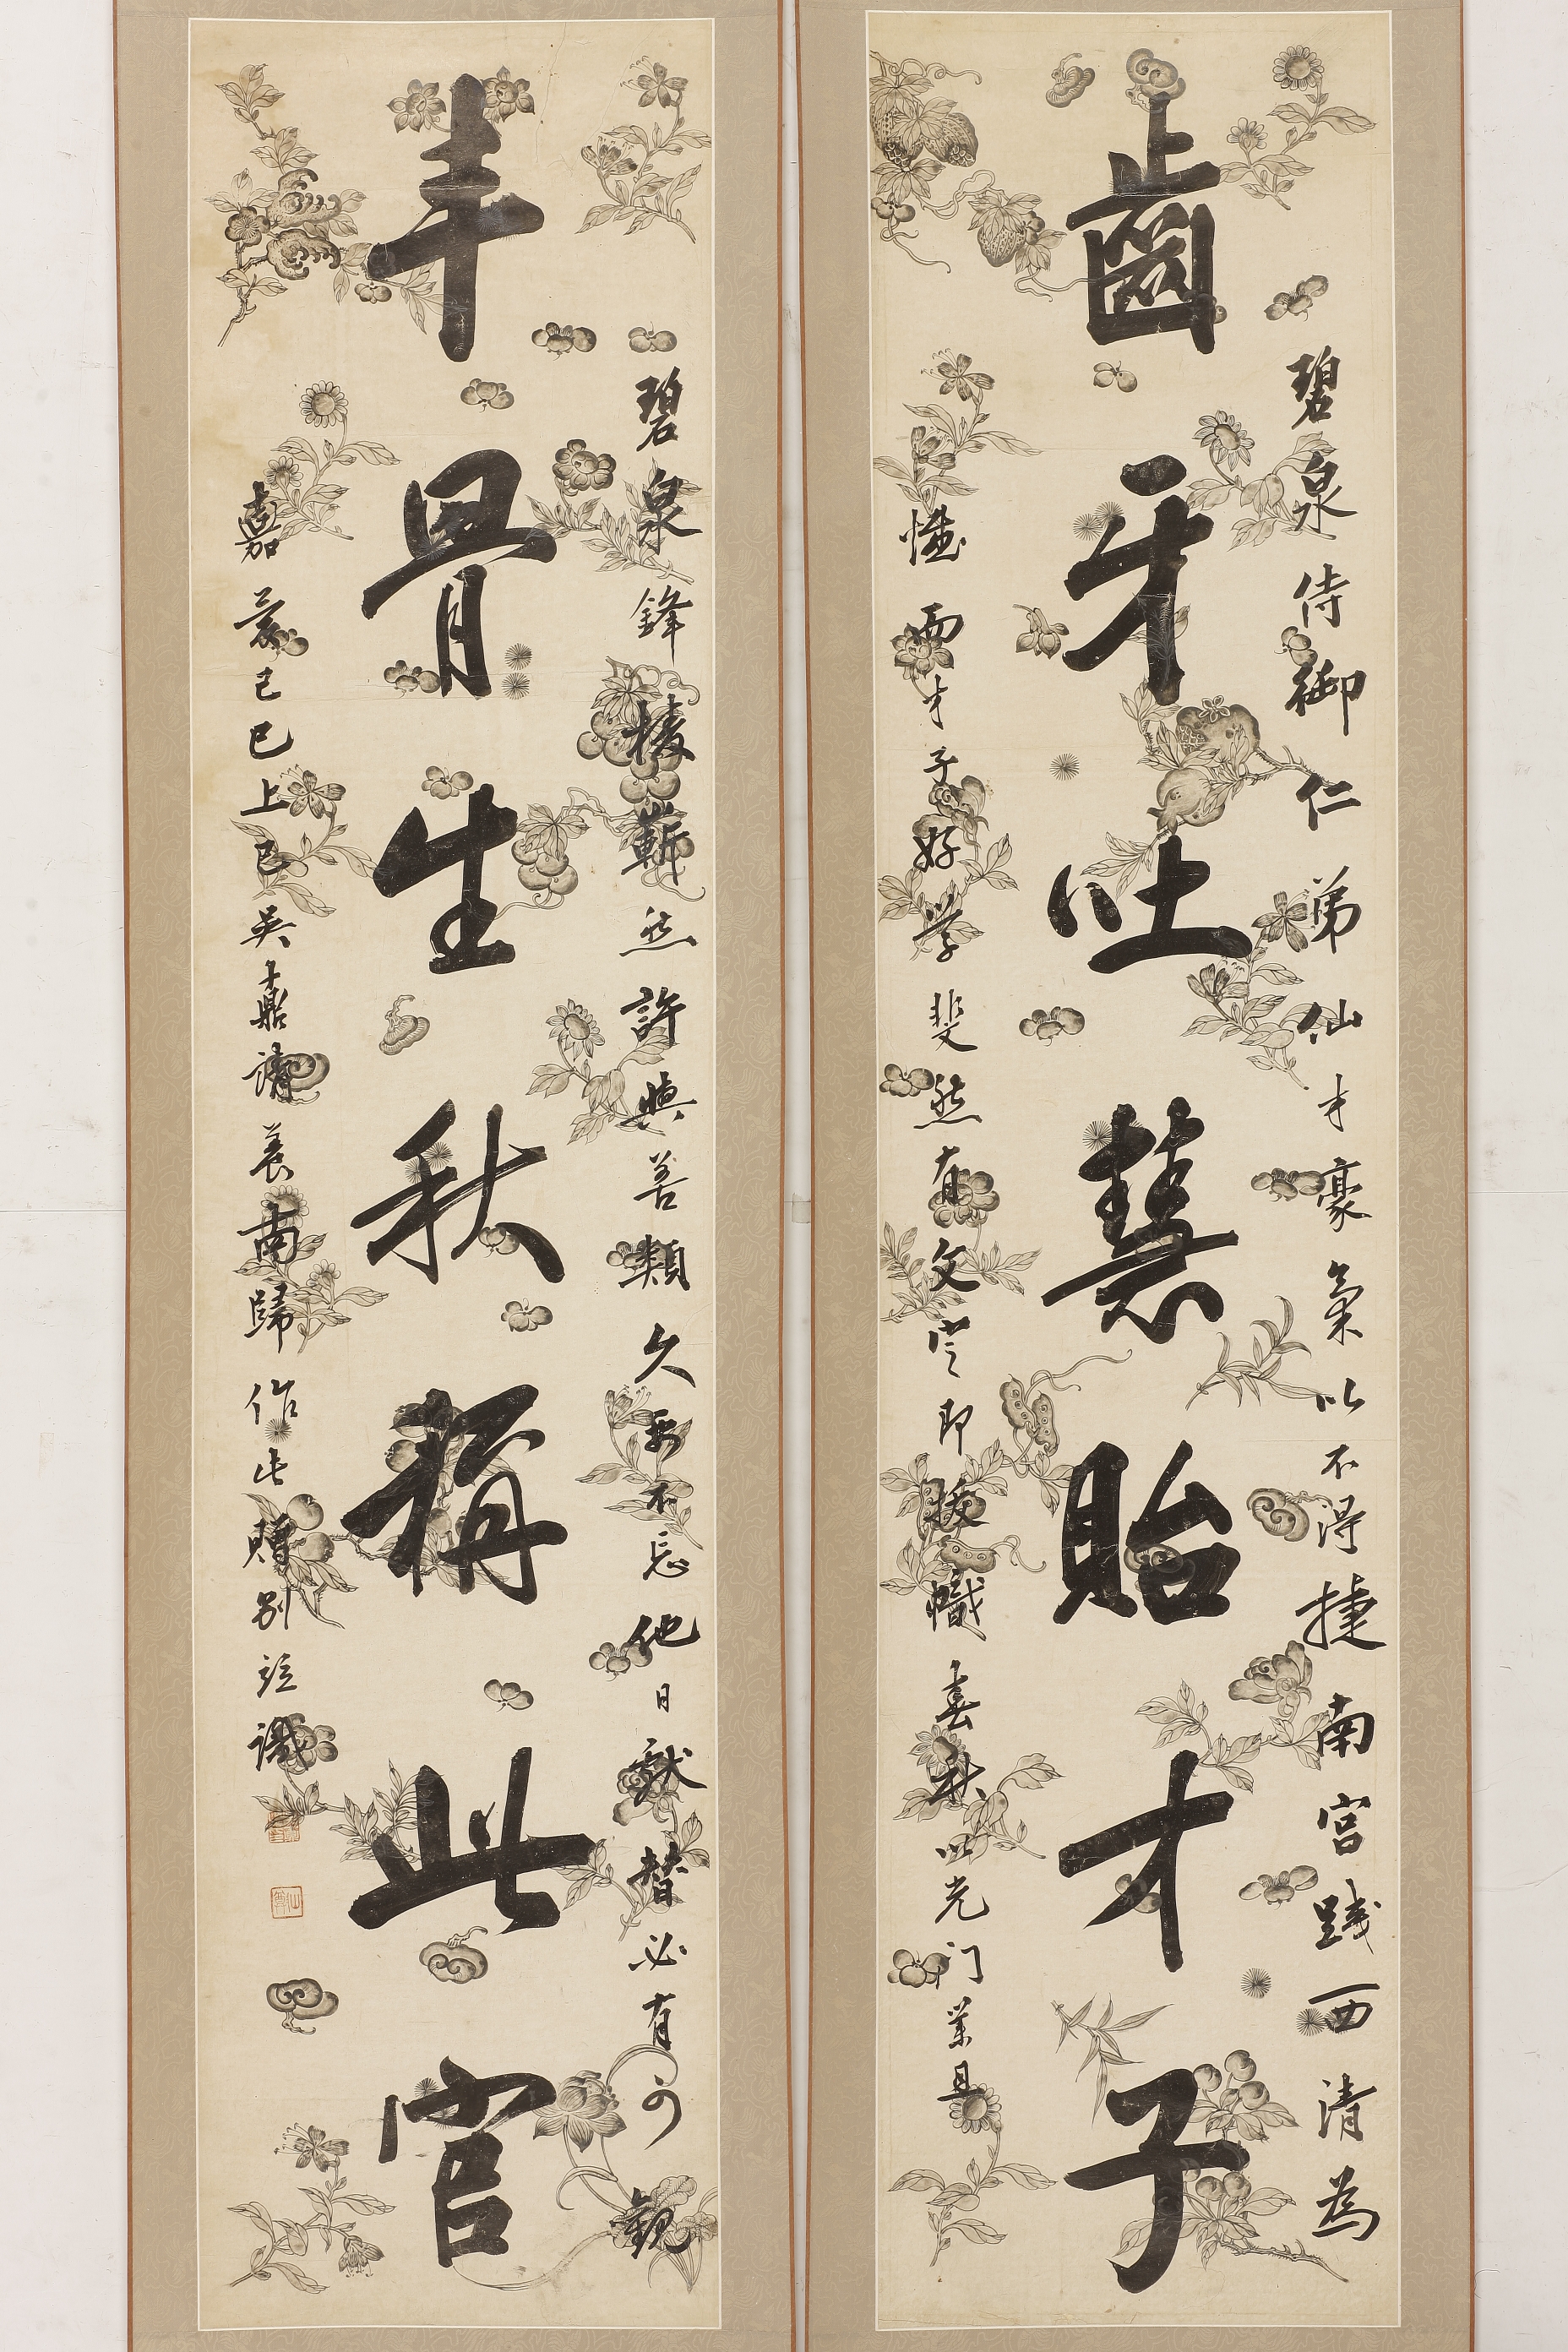 碧泉侍御仁弟仙才豪氣以不得捷南宮踐西清為
齒牙吐慧貽才子
憾而才子好學斐然有文譽即拔幟春秋以光門業且
碧泉鋒棱嶄然許與善類久要不忘他日獻替必有可觀
丰骨生秋稱此官
嘉慶己巳上巳吳鼒請養南歸作此贈別並識